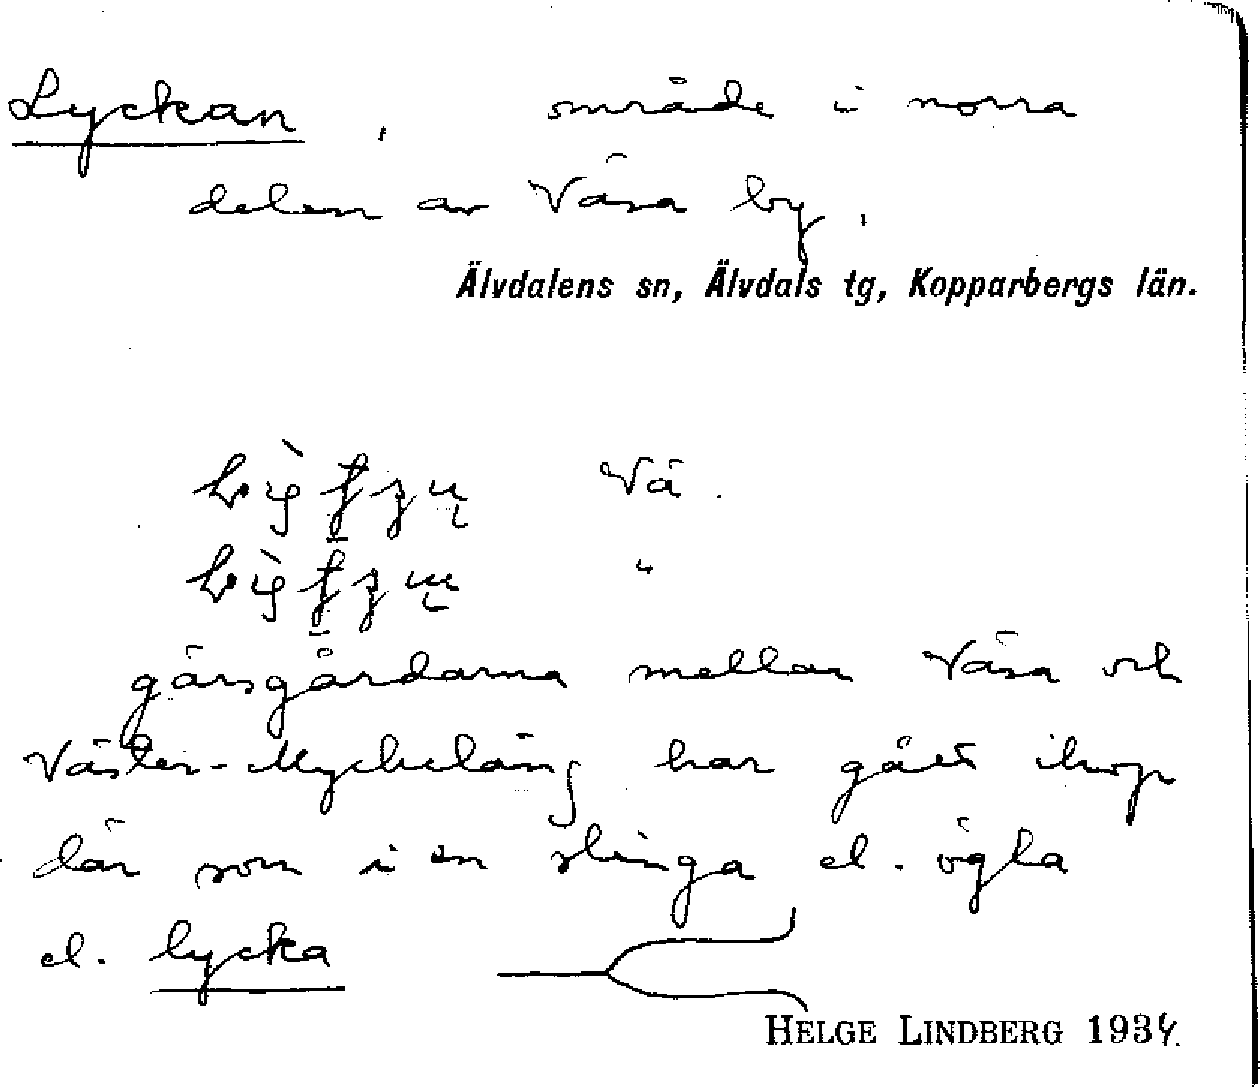 Lyckan, område i norra
delen av Väsa by,
Älvdalens sn, Älvdals tg, Kopparbergs län.
Vä.
"
gärsgårdarna mellan Väsa och
Väster-Myckeläng har gått ihop
där som i en slinga el. ögla
el. lycka
HELGE LINDBERG 1934.